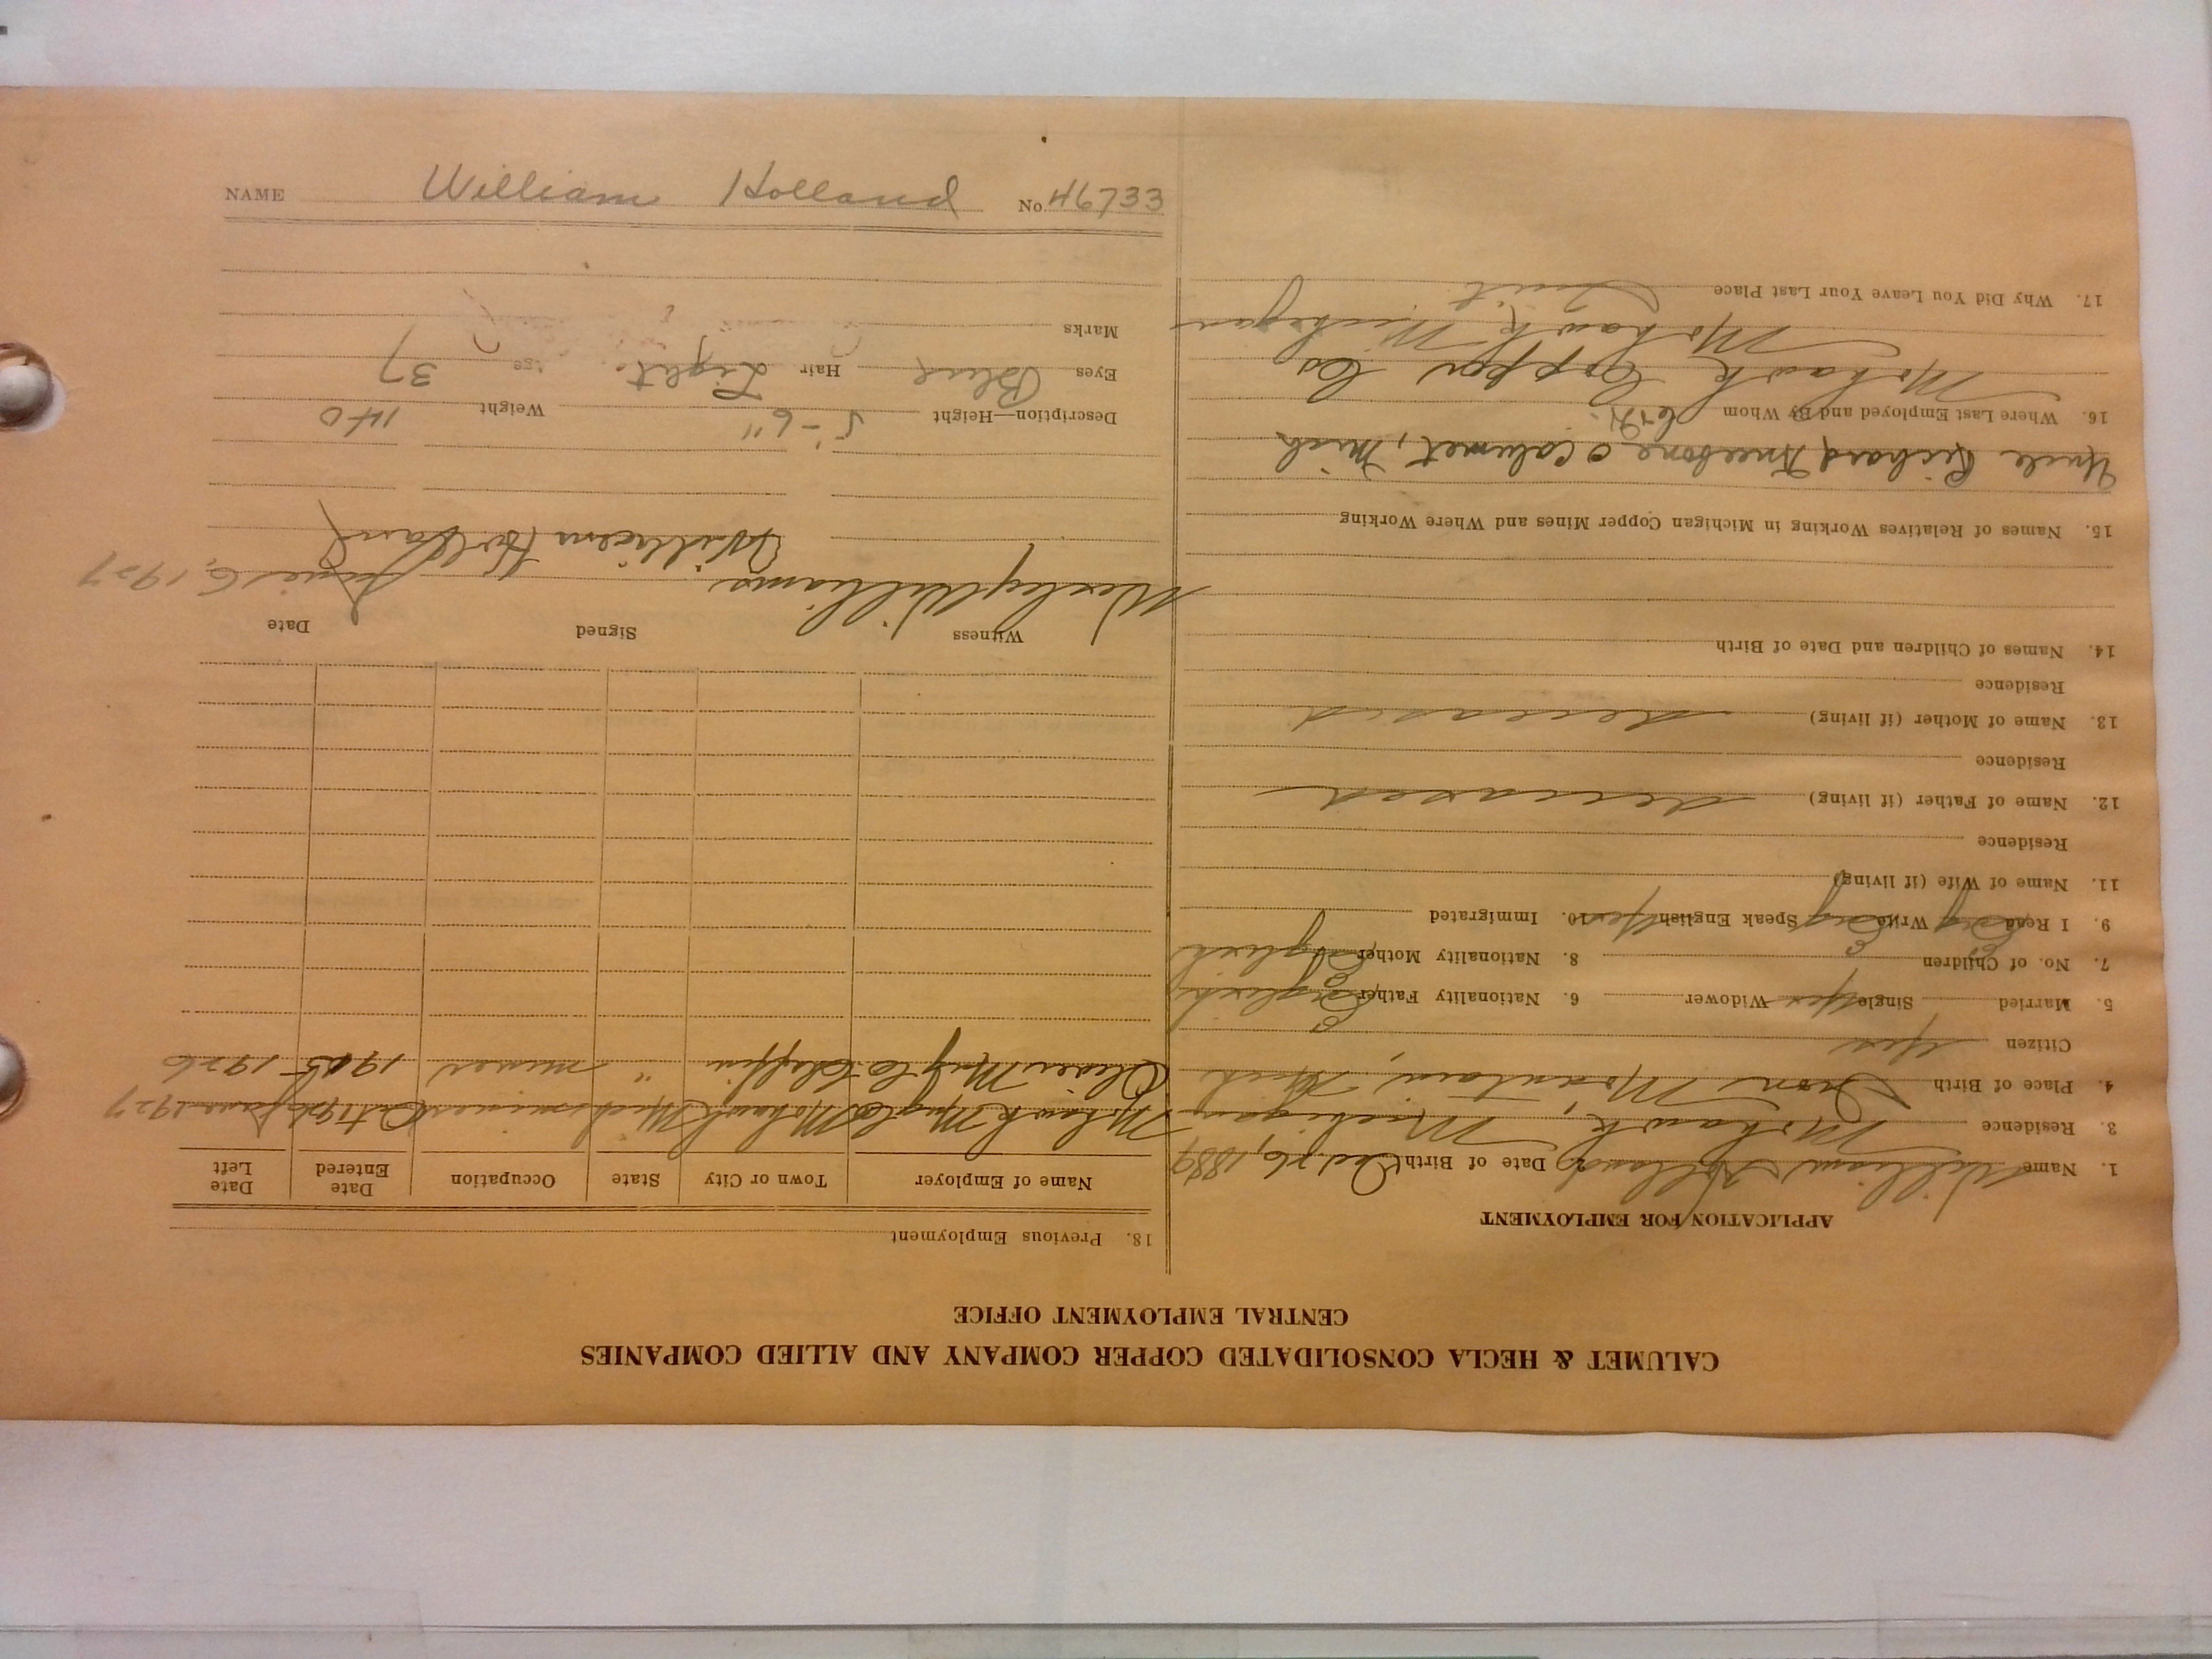 CALUMET & HECLA CONSOLIDATED COPPER COMPANY AND ALLIED COMPANIES
CENTRAL EMPLOYMENT OFFICE
APPLICATION FOR EMPLOYMENT
1. Name William Holland Date of Birth 26, 1889
3. Residence Mohawk, Michigan
4. Place of Birth Iron Mountain, Mich
Citizen Yes
5. Married Single Yes Widower 6. Nationality Father English
7. No. of Children 8. Nationality Mother English
9. I Read Eng Write Eng Speak English Yes 10. Immigrated
11. Name of Wife (if living)
Residence
12. Name of Father (if living) deceased
Residence
13. Name of Mother (if living) deceased
Residence
14. Names of Children and Date of Birth
15. Names of Relatives Working in Michigan Copper Mines and Where Working
Uncle Richard Kneebone Calumet, Mich
16. Where Last Employed and By Whom C & H.
Mohawk Copper Co
Mohawk Michigan
17. Why Did You Leave Your Last Place Quit
18. Previous Employment
Name of Employer Town or City State Occupation Date Entered Date Left
Mohawk Mng Co Mohawk Mich miner Oct 1926 June 1927
Oliver Mng Co " miner 1905 1926
Witness Signed Date
Wesley Williams William Holland June 6, 1927
Description—Height 5'-6" Weight 140
Eyes Blue Hair Light Age 37
Marks
NAME William Holland No. 46733